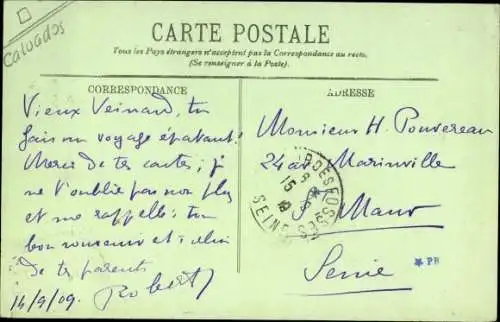 Calvados
CARTE POSTALE
Tous les Pays étrangers n'acceptent pas la Correspondance au recto.
(Se renseigner à la Poste).
CORRESPONDANCE
Vieux Veinard, tu
fais un voyage épatant!
Merci de tes cartes; je
ne t'oublie pas non plus
et me rappelle ton
bon souvenir et à celui
de tes parents
Robert
14/9/09.
ADRESSE
Monsieur H. Pouvereau
24 av Marinville
St Maur
Seine
FOSSES
SEINE
15
* PB